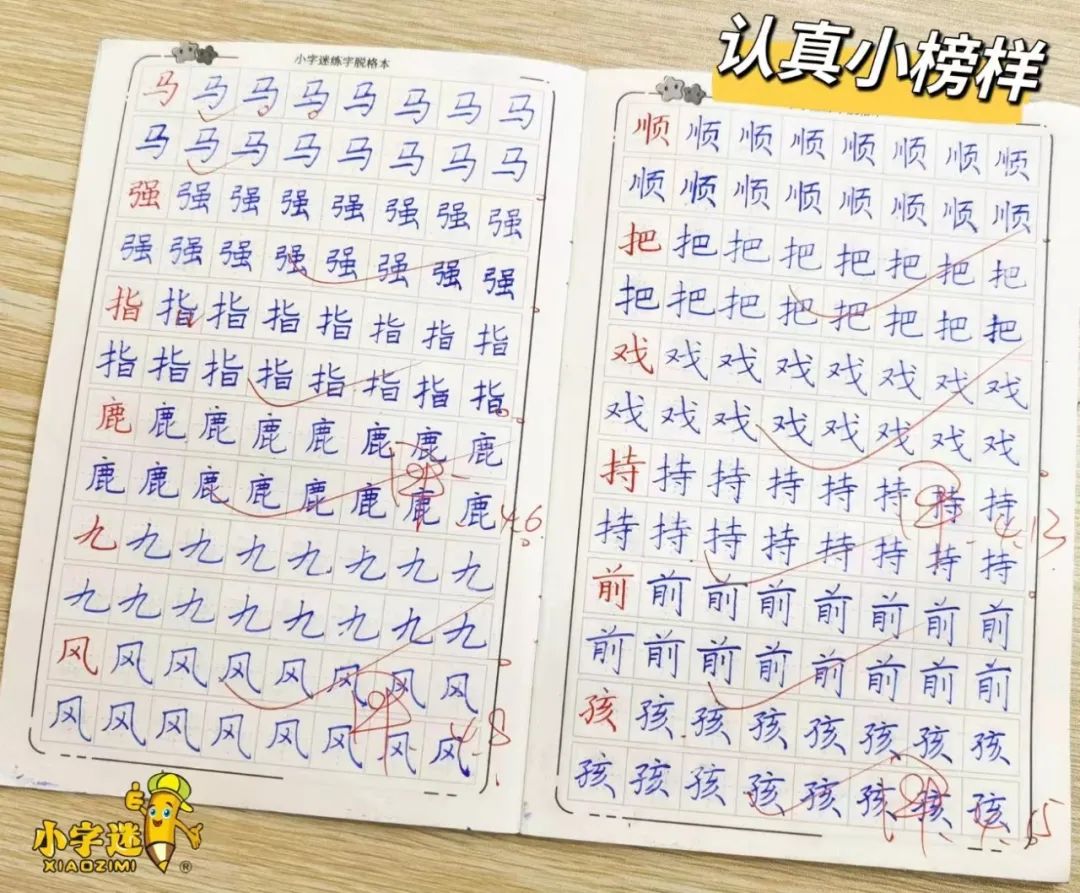 认真小榜样
小字迷练字脱格本
马马马马马马马马
马马马马马马马马
强强强强强强强强
强强强强强强强强
指指指指指指指指
指指指指指指指指
鹿鹿鹿鹿鹿鹿鹿鹿
鹿鹿鹿鹿鹿鹿鹿鹿
4.6.
九九九九九九九九
九九九九九九九九
风风风风风风风风
风风风风风风风风
4.8.
顺顺顺顺顺顺顺顺
顺顺顺顺顺顺顺顺
把把把把把把把把
把把把把把把把把
戏戏戏戏戏戏戏戏
戏戏戏戏戏戏戏戏
持持持持持持持持
持持持持持持持持
4.13.
前前前前前前前前
前前前前前前前前
孩孩孩孩孩孩孩孩
孩孩孩孩孩孩孩孩
4.15
小字迷
XIAOZIMI®